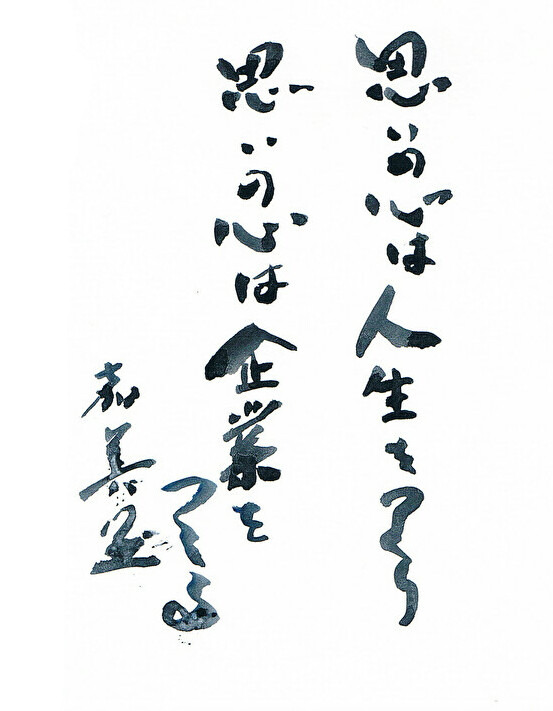 思いの心は人生をつくる
思いの心は企業を
つくる